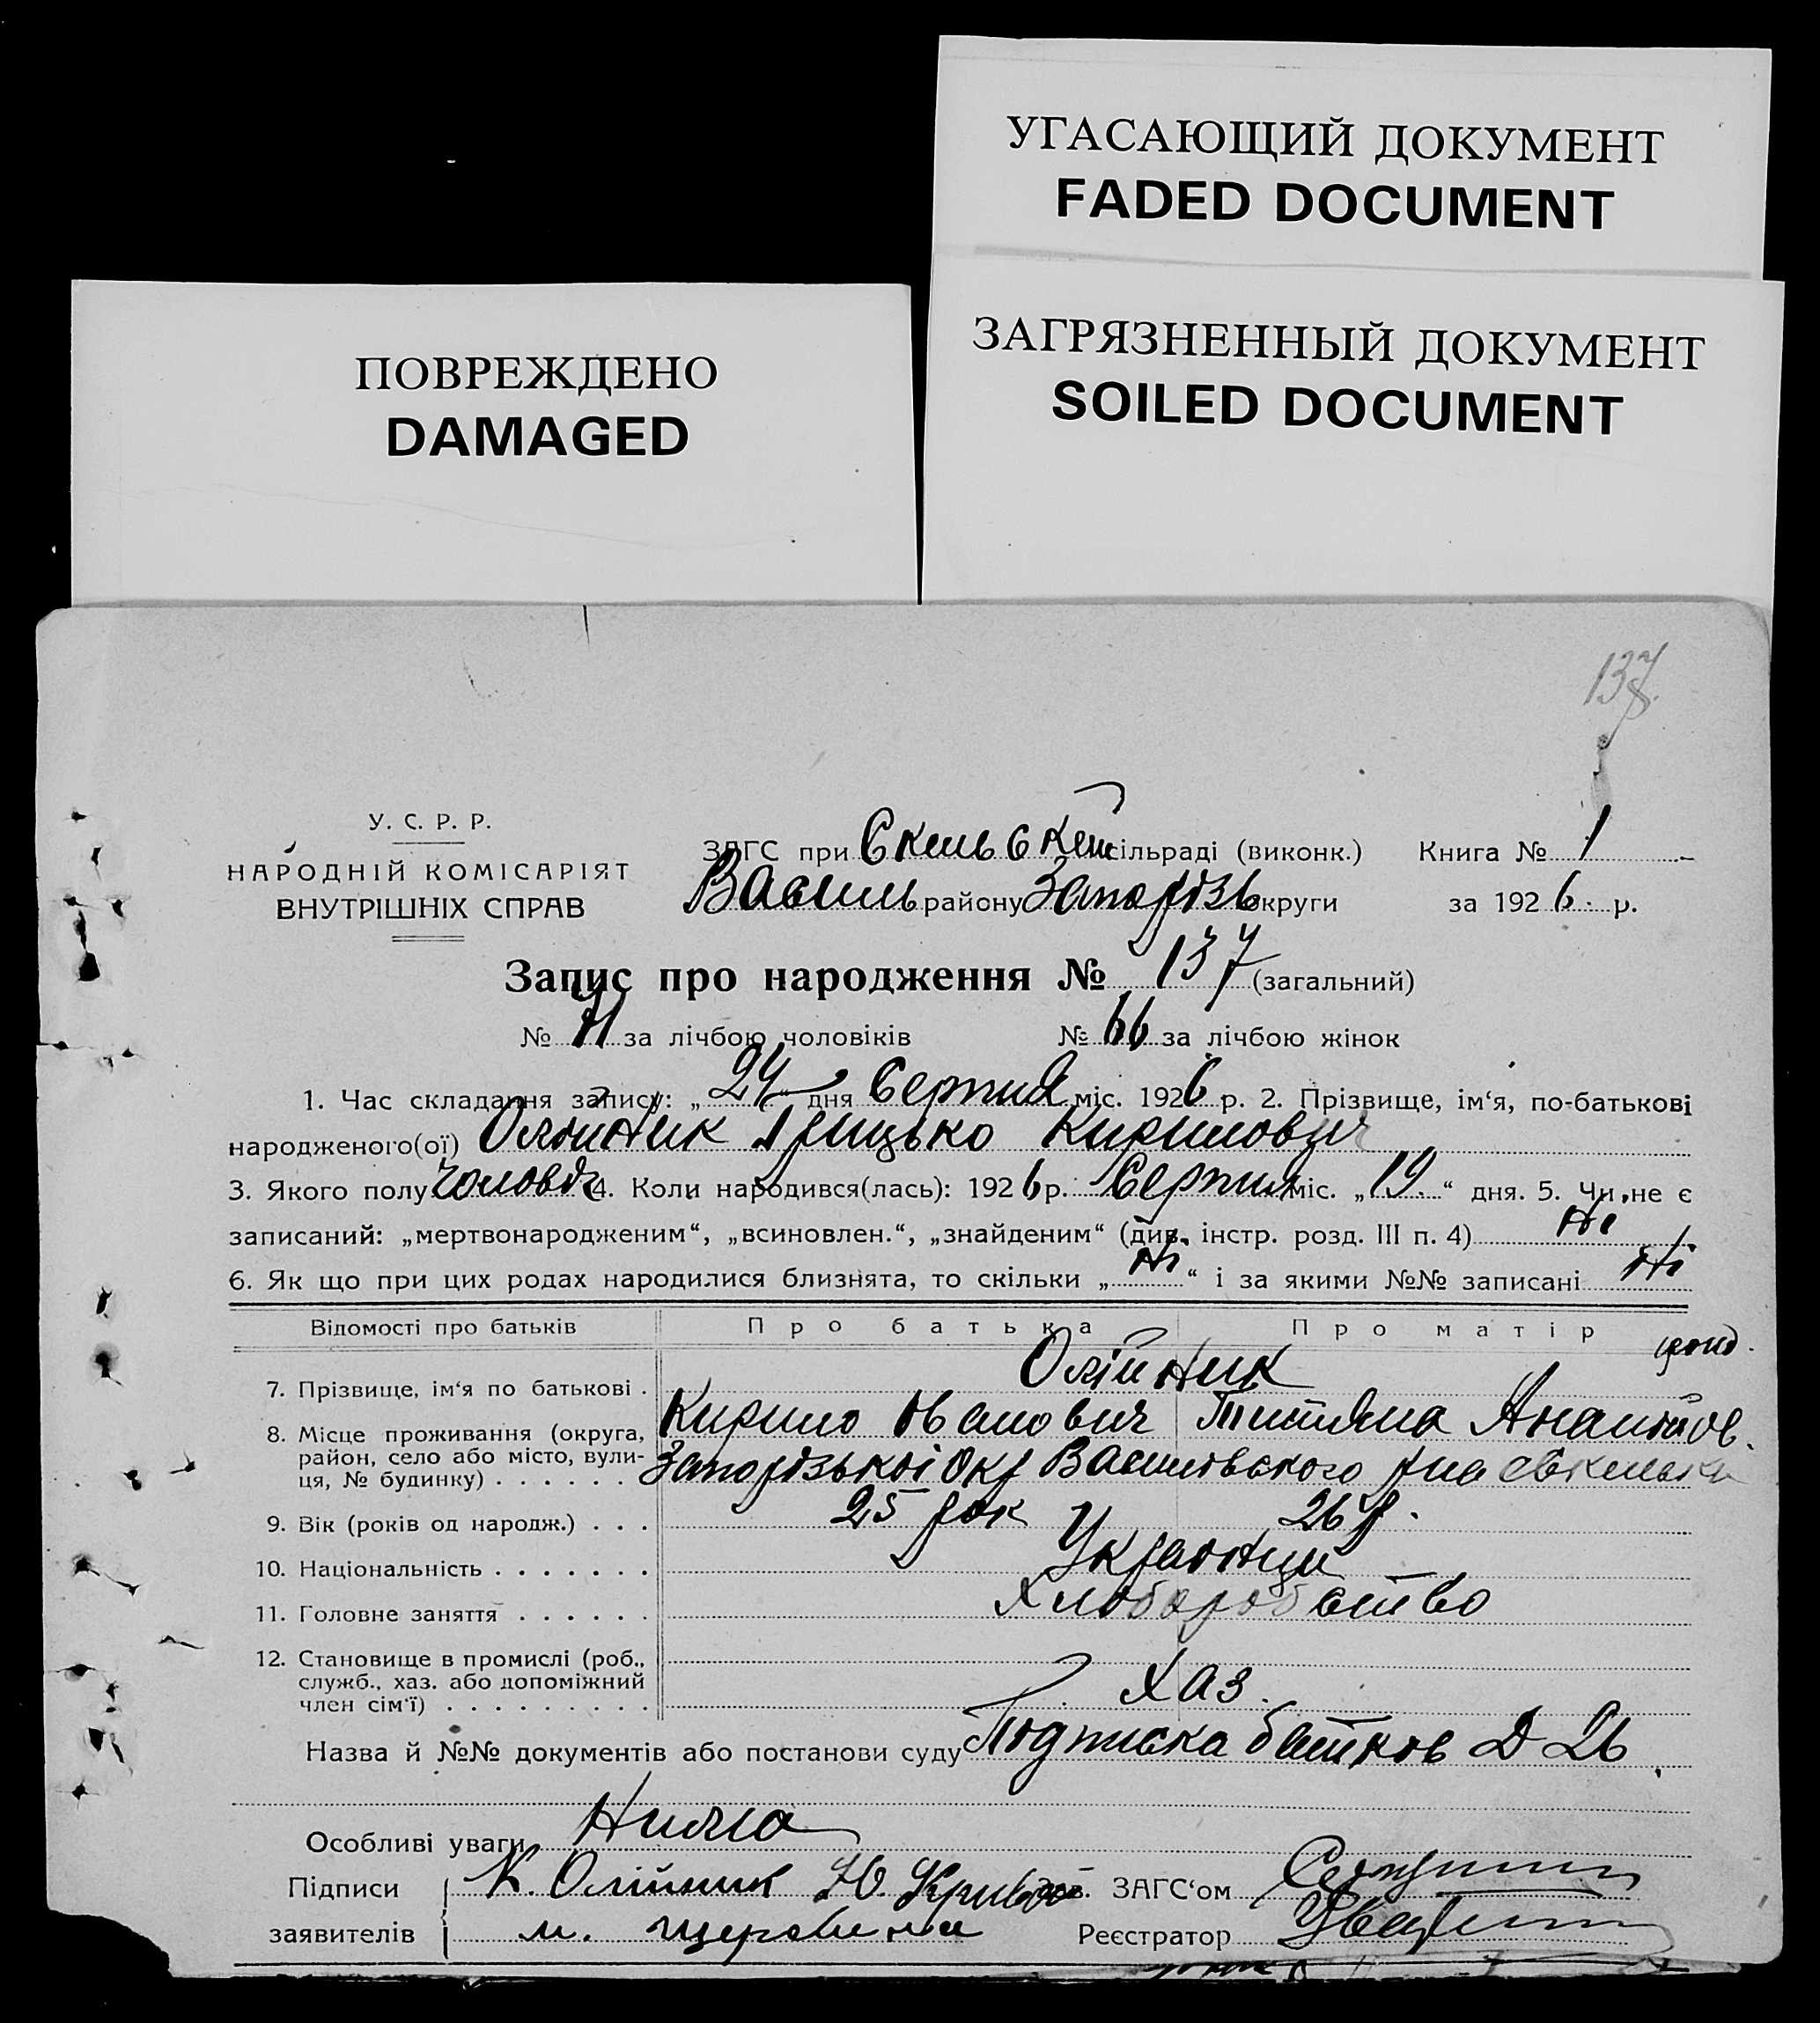 УГАСАЮЩИЙ ДОКУМЕНТ
FADED DOCUMENT
ЗАГРЯЗНЕННЫЙ ДОКУМЕНТ
SOILED DOCUMENT
ПОВРЕЖДЕНО
DAMAGED
137
У. С. Р. Р.
НАРОДНІЙ КОМІСАРІЯТ
ВНУТРІШНІХ СПРАВ
ЗАГС при Скельській сільраді (виконк.) Книга № 1
Василь району Запорізь округи за 1926 р.
Запис про народження № 137 (загальний)
№ 71 за лічбою чоловіків № 66 за лічбою жінок
1. Час складання запису: „24“ дня Серпня міс. 1926 р. 2. Прізвище, ім‘я, по-батькові
народженого(ої) Олійник Грицько Кирилович
3. Якого полу чоловіч 4. Коли народився(лась): 1926 р. Серпня міс. „19.“ дня. 5. Чи не є
записаний: „мертвонародженим“, „всиновлен.“, „знайденим“ (див. інстр. розд. III п. 4) Ні
6. Як що при цих родах народилися близнята, то скільки „Ні“ і за якими №№ записані Ні
Відомості про батьків Про батька Про матір
7. Прізвище, ім‘я по батькові . Олійник
Кирило Іванович Титяна Анантіов.
8. Місце проживання (округа, район, село або місто, вулиця, № будинку) . . . . . . Запорізької Окр Василівського
9. Вік (років од народж.) . . . 25 рок 26 р.
10. Національність . . . . . . . Українці
11. Головне заняття . . . . . . Хліборобство
12. Становище в промислі (роб.,
служб., хаз. або допоміжний
член сім‘ї) . . . . . . . . . Хаз.
Назва й №№ документів або постанови суду Подписка батьков Д 26
Особливі уваги Нима
Підписи К. Олійник Ю. Зав. ЗАГС‘ом
заявителів м. Щербина Реєстратор